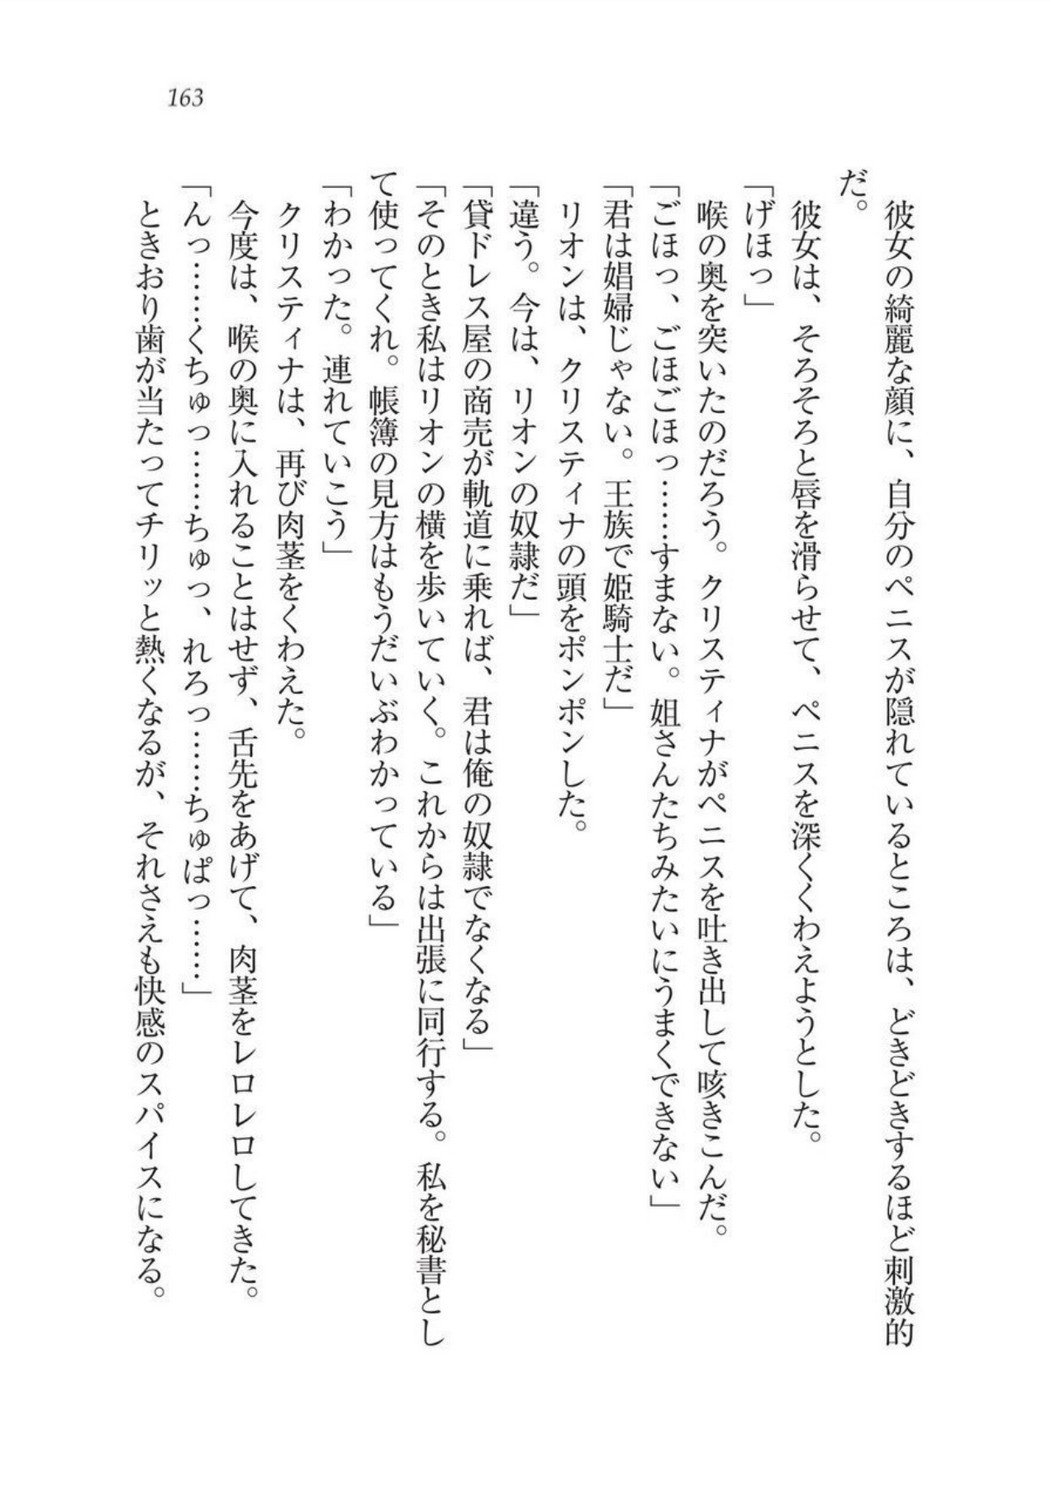 163
彼女の綺麗な顔に、自分のペニスが隠れているところは、どきどきするほど刺激的
だ。
彼女は、そろそろと唇を滑らせて、ペニスを深くくわえようとした。
「げほっ」
喉の奥を突いたのだろう。クリスティナがペニスを吐き出して咳きこんだ。
「ごほっ、ごほごほっ……すまない。姐さんたちみたいにうまくできない」
「君は娼婦じゃない。王族で姫騎士だ」
リオンは、クリスティナの頭をポンポンした。
「違う。今は、リオンの奴隷だ」
「貸ドレス屋の商売が軌道に乗れば、君は俺の奴隷でなくなる」
「そのとき私はリオンの横を歩いていく。これからは出張に同行する。私を秘書とし
て使ってくれ。帳簿の見方はもうだいぶわかっている」
「わかった。連れていこう」
クリスティナは、再び肉茎をくわえた。
今度は、喉の奥に入れることはせず、舌先をあげて、肉茎をレロレロしてきた。
「んっ……くちゅっ……ちゅっ、れろっ……ちゅぱっ……」
ときおり歯が当たってチリッと熱くなるが、それさえも快感のスパイスになる。